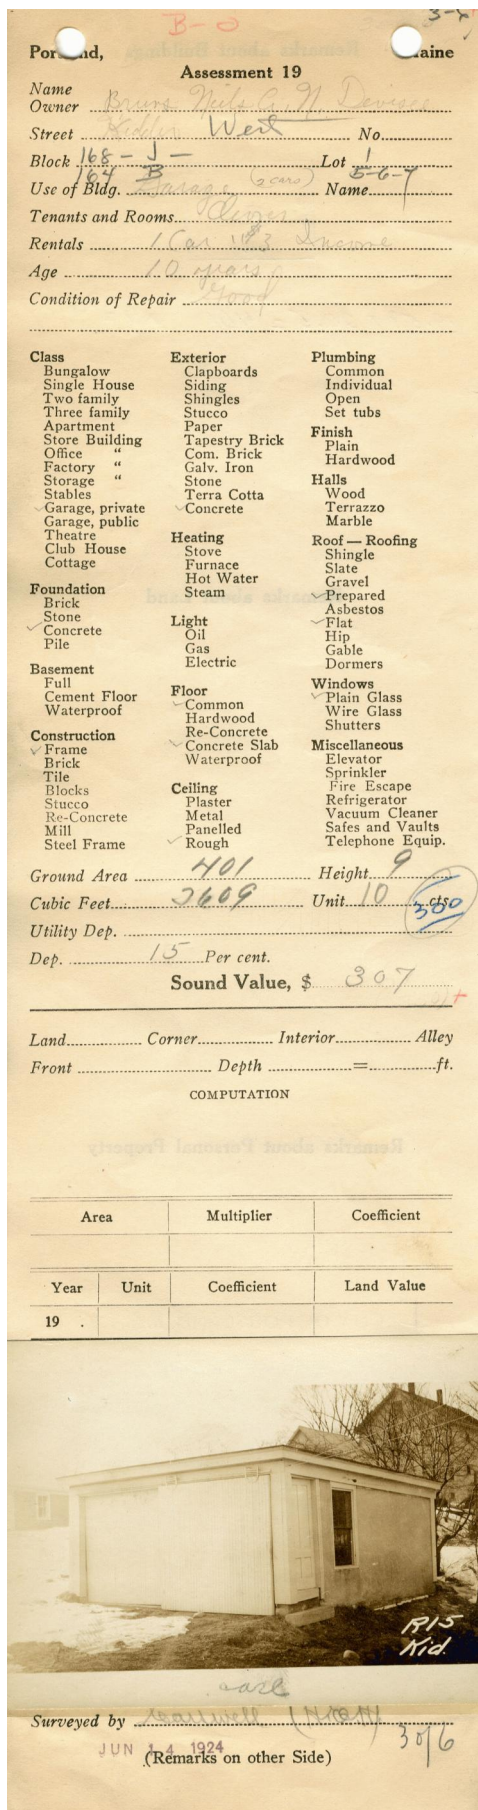 B-O
Portland, Maine
Assessment 19
Name
Owner Bruns Neils C. N. Devisee
Street West No.
Block 168 - J - Lot 1
164 B 5-6-7
Use of Bldg. Garage (2 cars) Name
Tenants and Rooms Owner
Rentals 1 Car $3 Income
Age 10 years
Condition of Repair Good
Class
Bungalow
Single House
Two family
Three family
Apartment
Store Building
Office "
Factory "
Storage "
Stables
✓ Garage, private
Garage, public
Theatre
Club House
Cottage
Foundation
Brick
Stone
✓ Concrete
Pile
Basement
Full
Cement Floor
Waterproof
Construction
✓ Frame
Brick
Tile
Blocks
Stucco
Re-Concrete
Mill
Steel Frame
Exterior
Clapboards
Siding
Shingles
Stucco
Paper
Tapestry Brick
Com. Brick
Galv. Iron
Stone
Terra Cotta
✓ Concrete
Heating
Stove
Furnace
Hot Water
Steam
Light
Oil
Gas
Electric
Floor
✓ Common
Hardwood
Re-Concrete
✓ Concrete Slab
Waterproof
Ceiling
Plaster
Metal
Panelled
✓ Rough
Plumbing
Common
Individual
Open
Set tubs
Finish
Plain
Hardwood
Halls
Wood
Terrazzo
Marble
Roof — Roofing
Shingle
Slate
Gravel
✓ Prepared
Asbestos
✓ Flat
Hip
Gable
Dormers
Windows
✓ Plain Glass
Wire Glass
Shutters
Miscellaneous
Elevator
Sprinkler
Fire Escape
Refrigerator
Vacuum Cleaner
Safes and Vaults
Telephone Equip.
Ground Area 401 Height 9
Cubic Feet 3609 Unit 10 cts.
300
Utility Dep.
Dep. 15 Per cent.
Sound Value, $ 307
Land Corner Interior Alley
Front Depth = ft.
COMPUTATION
Remarks about Personal Property
Area Multiplier Coefficient
Year Unit Coefficient Land Value
19 .
R15
Kid.
Surveyed by
JUN 14 1924
(Remarks on other Side)